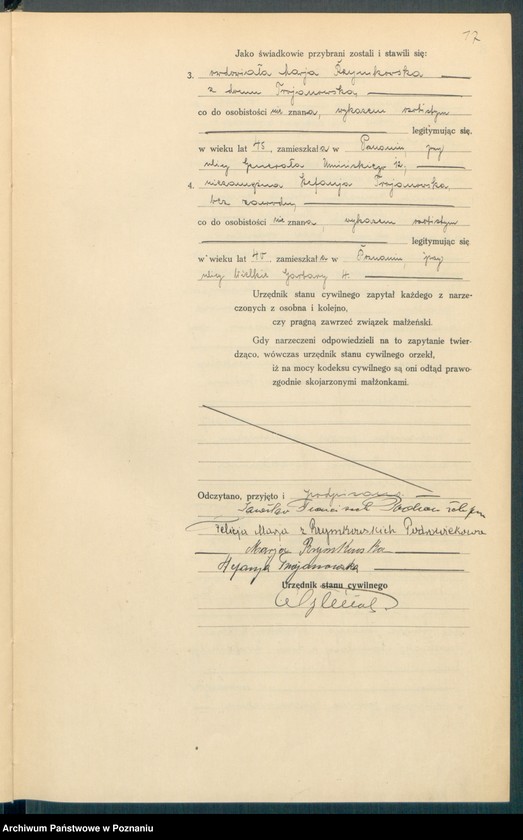 17
Jako świadkowie przybrani zostali i stawili się:
3. owdowiała Marja Rzymkowska
z domu Trojanowska,
co do osobistości nie znana, wykazem osobistym
legitymując się,
w wieku lat 45, zamieszkała w Poznaniu, przy
ulicy Generała Umińskiego 12,
4. niezamężna Stefanja Trojanowska,
bez zawodu,
co do osobistości nie znana, wykazem osobistym
legitymując się
w wieku lat 40, zamieszkała w Poznaniu, przy
ulicy Wielkie Garbary 4.
Urzędnik stanu cywilnego zapytał każdego z narze-
czonych z osobna i kolejno,
czy pragną zawrzeć związek małżeński.
Gdy narzeczeni odpowiedzieli na to zapytanie twier-
dząco, wówczas urzędnik stanu cywilnego orzekł,
iż na mocy kodeksu cywilnego są oni odtąd prawo-
zgodnie skojarzonymi małżonkami.
Odczytano, przyjęto i podpisano
Franciszek
Felicja Marja z Rzymkowskich
Marja Rzymkowska
Stefanja Trojanowska
Urzędnik stanu cywilnego
Archiwum Państwowe w Poznaniu